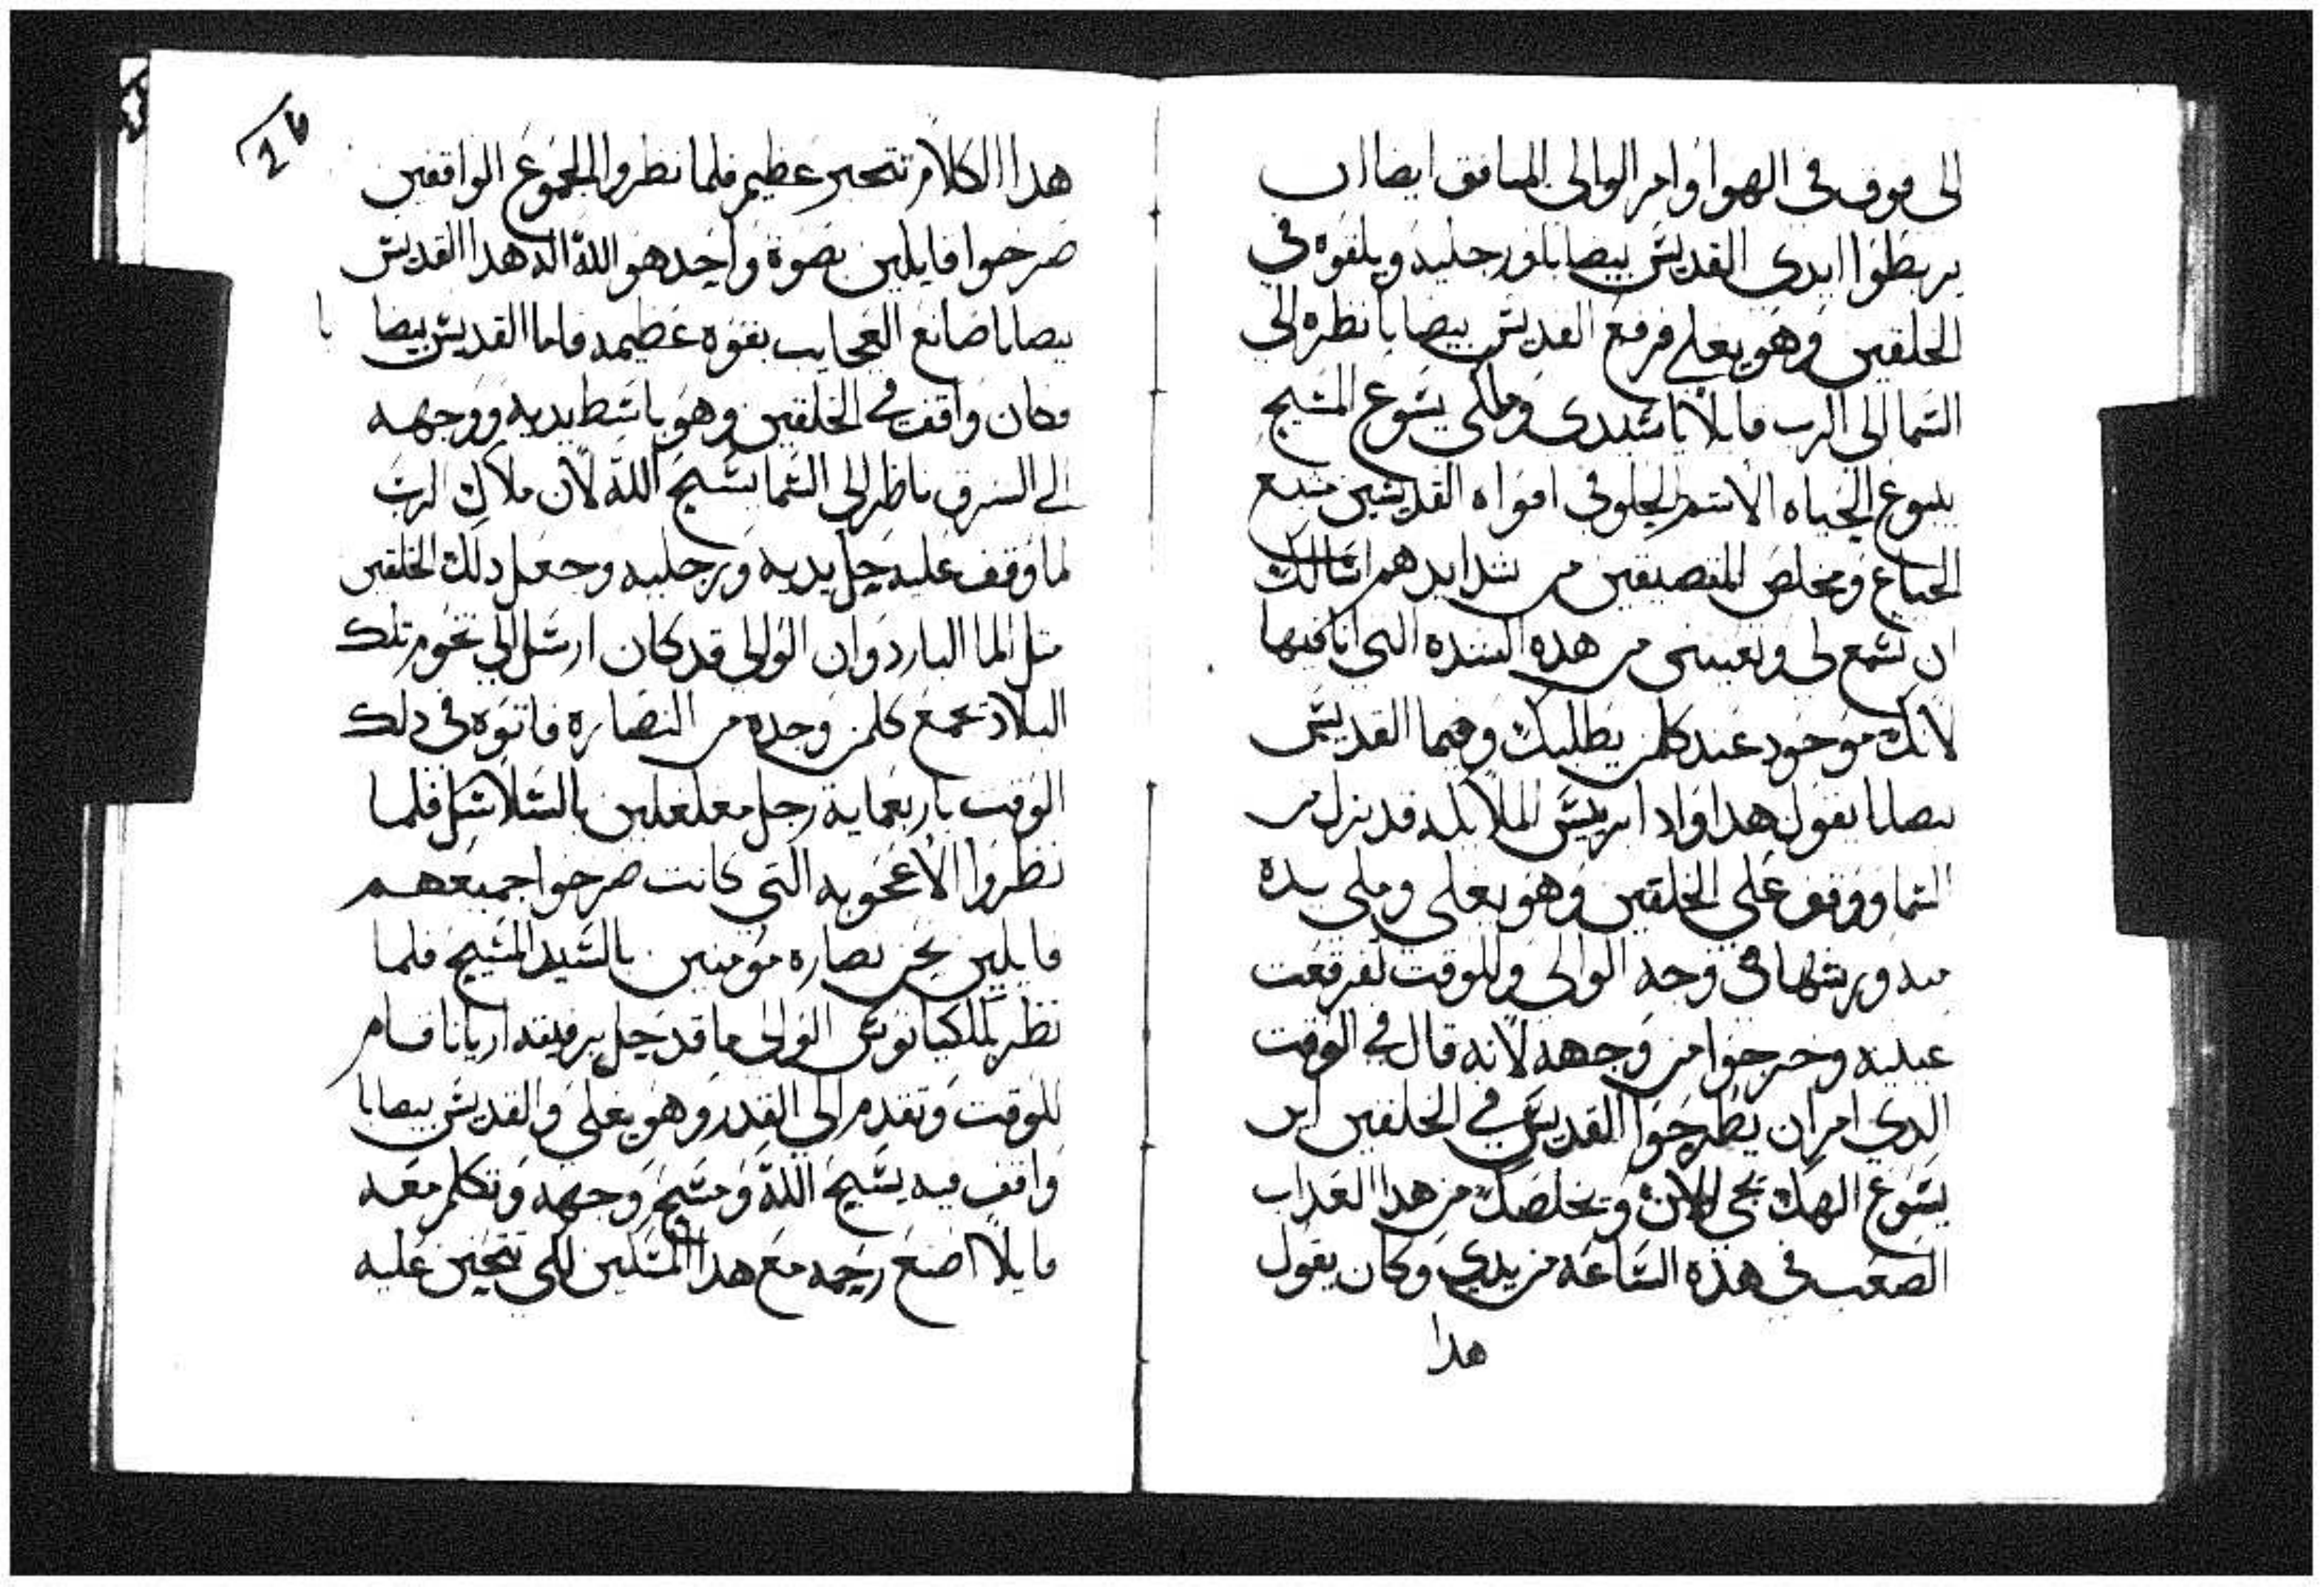 الى فوق في الهوا وامر الوالى المنافق ايضا ان
يربطوا ايدى القديس بيصابا ورجليه ويلقوه في
الخلقين وهو يغلي فرفع القديس بيصابا نظره الى
السما الى الرب قايلا يا سيدى وملكى يسوع المسيح
ينبوع الحياه الاسم الحلو في افواه القديسين مشبع
الجياع ومخلص المتضيقين من شدايدهم اسالك
ان تسمع لى وتعيننى من هذه الشده التى انا فيها
لانك موجود عند كلمن يطلبك وفيما القديس
بيصابا يقول هدا وادا بريس الملايكه قد نزل من
السما ووقف على الخلقين وهو يغلى وملى يده
منه ورشها في وجه الوالى وللوقت تفرقعت
عينيه وخرجوا من وجهه لانه قال في الوقت
الدي امر ان يطرحوا القديس في الخلقين اين
يسوع الهك يجى الان ويخلصك من هدا العداب
الصعب في هذه الساعة من يدي وكان يقول
هدا
هدا الكلام بتحير عظيم فلما نظروا الجموع الواقفين
صرخوا قايلين بصوة واحد هو الله اله هدا القديس
بيصابا صانع العجايب بقوه عظيمه فاما القديس بيصابا
فكان واقف في الخلقين وهو باسط يديه ووجهه
الى الشرق ناظر الى السما يسبح الله لان ملاك الرب
لما وقف عليه حل يديه ورجليه وجعل دلك الخلقين
متل الما البارد وان الوالى قد كان ارسل الى تخوم تلك
البلاد يجمع كلمن وجده من النصاره فاتوه في دلك
الوقت باربعماية رجل مغلغلين بالسلاسل فلما
نظروا الاعجوبه التي كانت صرخوا جميعهم
قايلين نحن نصاره مومنين بالسيد المسيح فلما
نظر بلكيانوس الوالى ما قد حل برفيقه اريانا قام
للوقت وتقدم الى القدر وهو يغلى والقديس بيصابا
واقف فيه يسبح الله ومسح وجهه وتكلم معه
قايلا اصنع رحمه مع هدا المسكين لكى تتحنن عليه